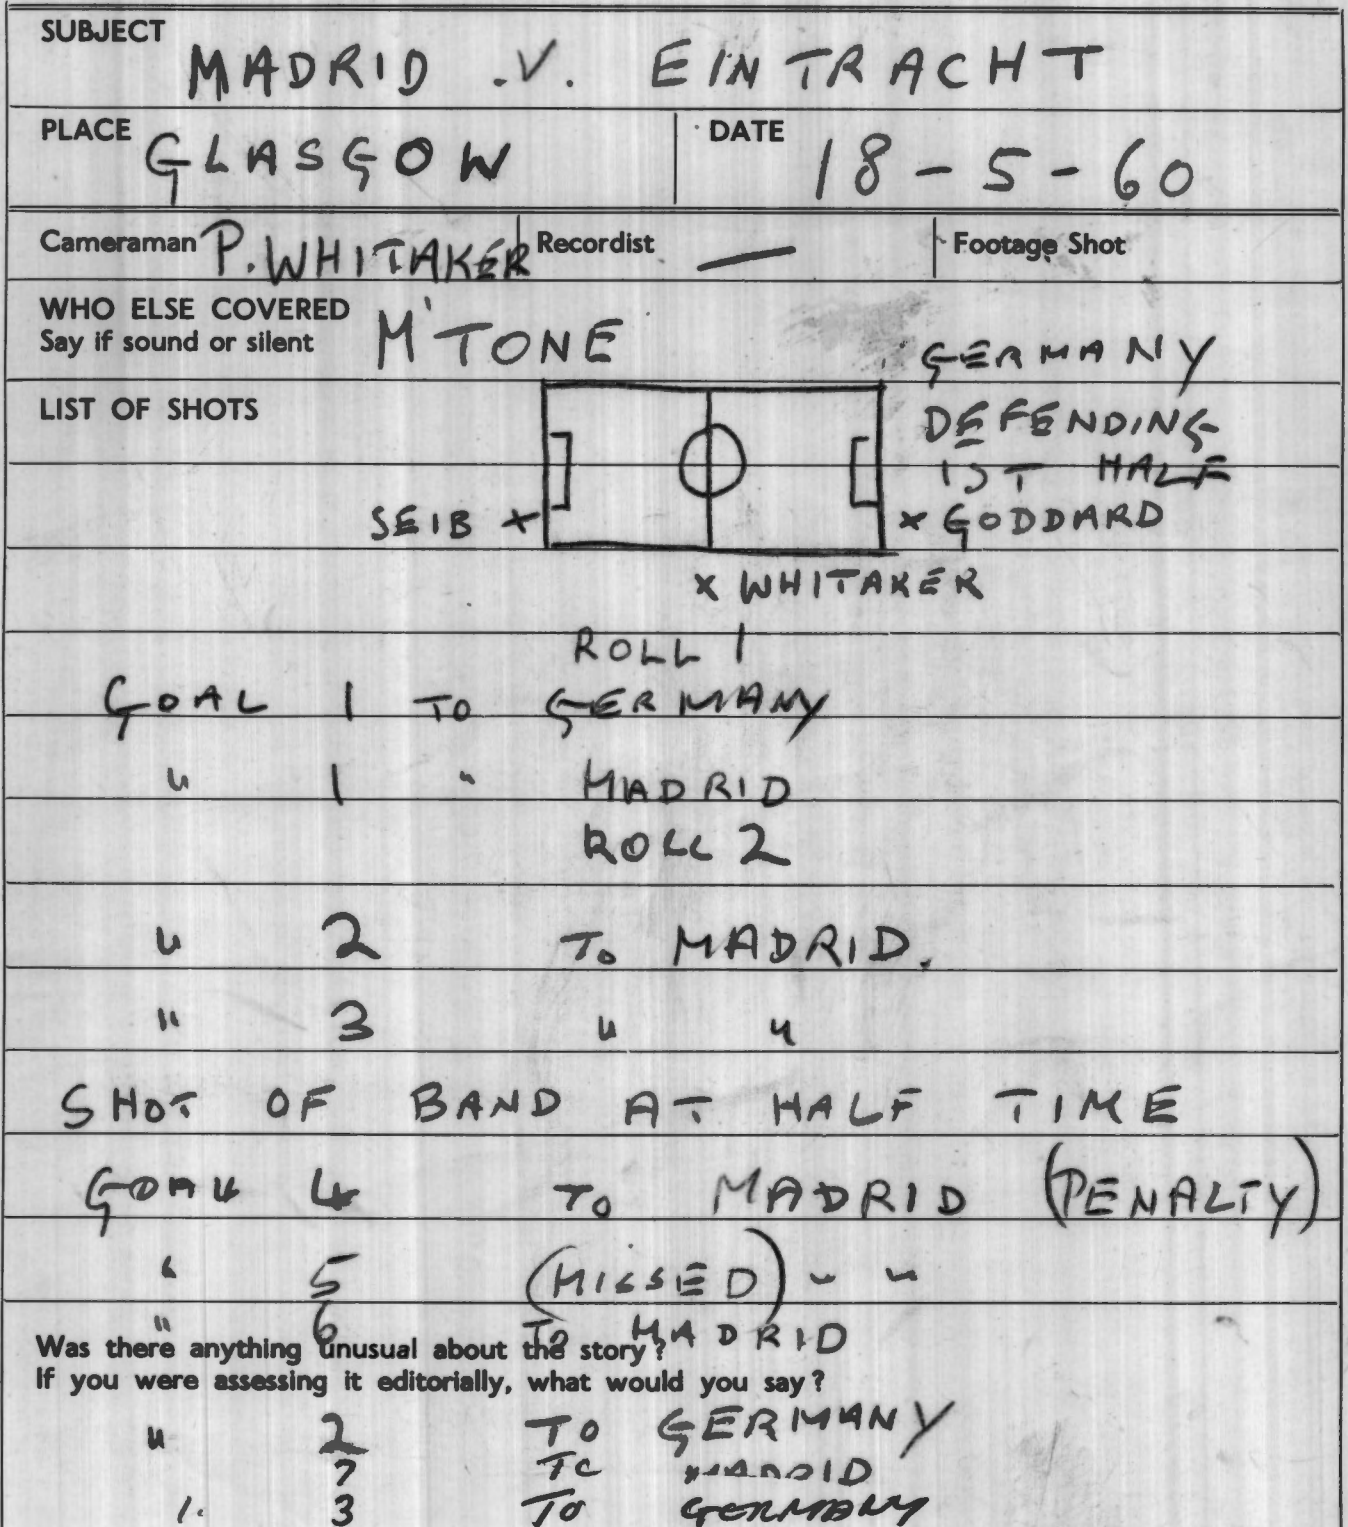 SUBJECT MADRID .V. EINTRACHT
PLACE GLASGOW DATE 18-5-60
Cameraman P. WHITAKER Recordist — Footage Shot
WHO ELSE COVERED
Say if sound or silent M'TONE
LIST OF SHOTS
GERMANY
DEFENDING
1ST HALF
SEIB x
x GODDARD
x WHITAKER
ROLL 1
GOAL 1 TO GERMANY
" 1 " MADRID
ROLL 2
" 2 TO MADRID.
" 3 " "
SHOT OF BAND AT HALF TIME
GOAL 4 TO MADRID (PENALTY)
" 5 (MISSED) " "
" 6 TO MADRID
Was there anything unusual about the story?
If you were assessing it editorially, what would you say?
" 2 TO GERMANY
7 TO MADRID
" 3 TO GERMANY